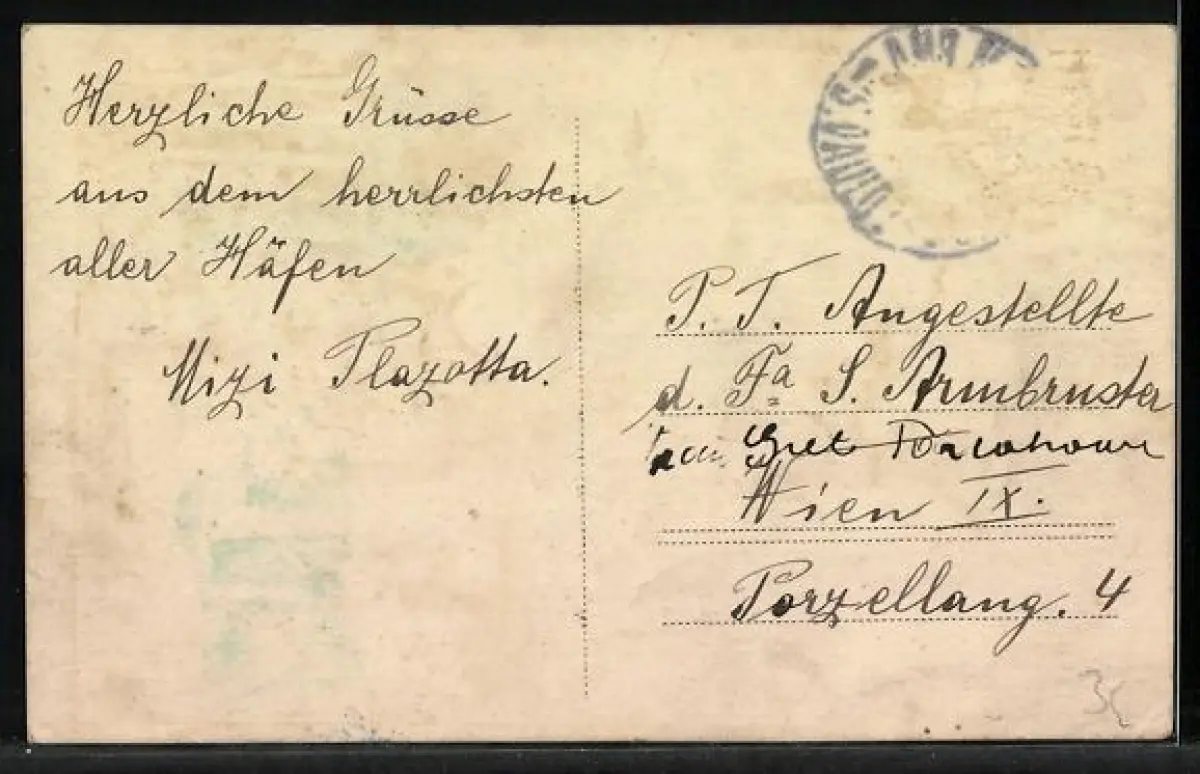 Herzliche Grüsse
aus dem herrlichsten
aller Häfen
Mizi Plazotta.
P. T. Angestellte
d. Fa S. Armbruster
Wien IX.
Porzellang. 4